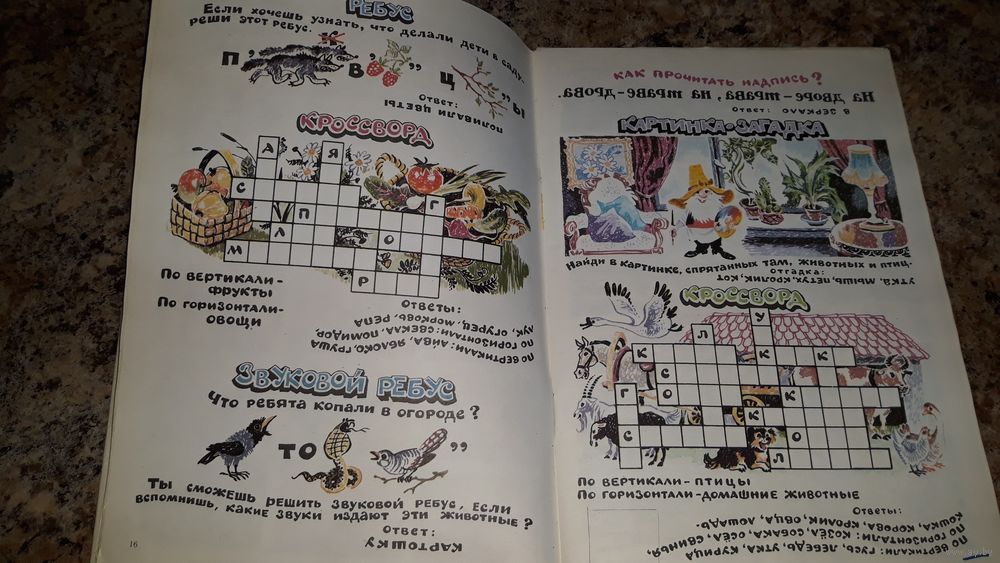 РЕБУС
Если хочешь узнать, что делали дети в саду,
реши этот ребус.
П' В' " Ц " Ы
Ответ:
ПОЛИВАЛИ ЦВЕТЫ
КРОССВОРД
А Я
С
П Г
Л О
М
Р
По вертикали-
фрукты
По горизонтали-
овощи
Ответы:
По вертикали: айва, яблоко, груша
По горизонтали: свекла, помидор,
лук, огурец, морковь, репа
ЗВУКОВОЙ РЕБУС
Что ребята копали в огороде?
ТО "
Ты сможешь решить звуковой ребус, если
вспомнишь, какие звуки издают эти животные?
Ответ:
КАРТОШКУ
16
КАК ПРОЧИТАТЬ НАДПИСЬ?
На дворе-трава, на траве-дрова.
Ответ: В ЗЕРКАЛО
КАРТИНКА-ЗАГАДКА
Найди в картинке, спрятанных там, животных и птиц.
Отгадка:
утка, мышь, петух, кролик, кот
КРОССВОРД
У
Л
К К К
С
Г О К
К
С О
Л
По вертикали-птицы
По горизонтали-домашние животные
Ответы:
По вертикали: гусь, лебедь, утка, курица
По горизонтали: козёл, собака, осёл, свинья,
кошка, корова, кролик, овца, лошадь.
www.ay.by